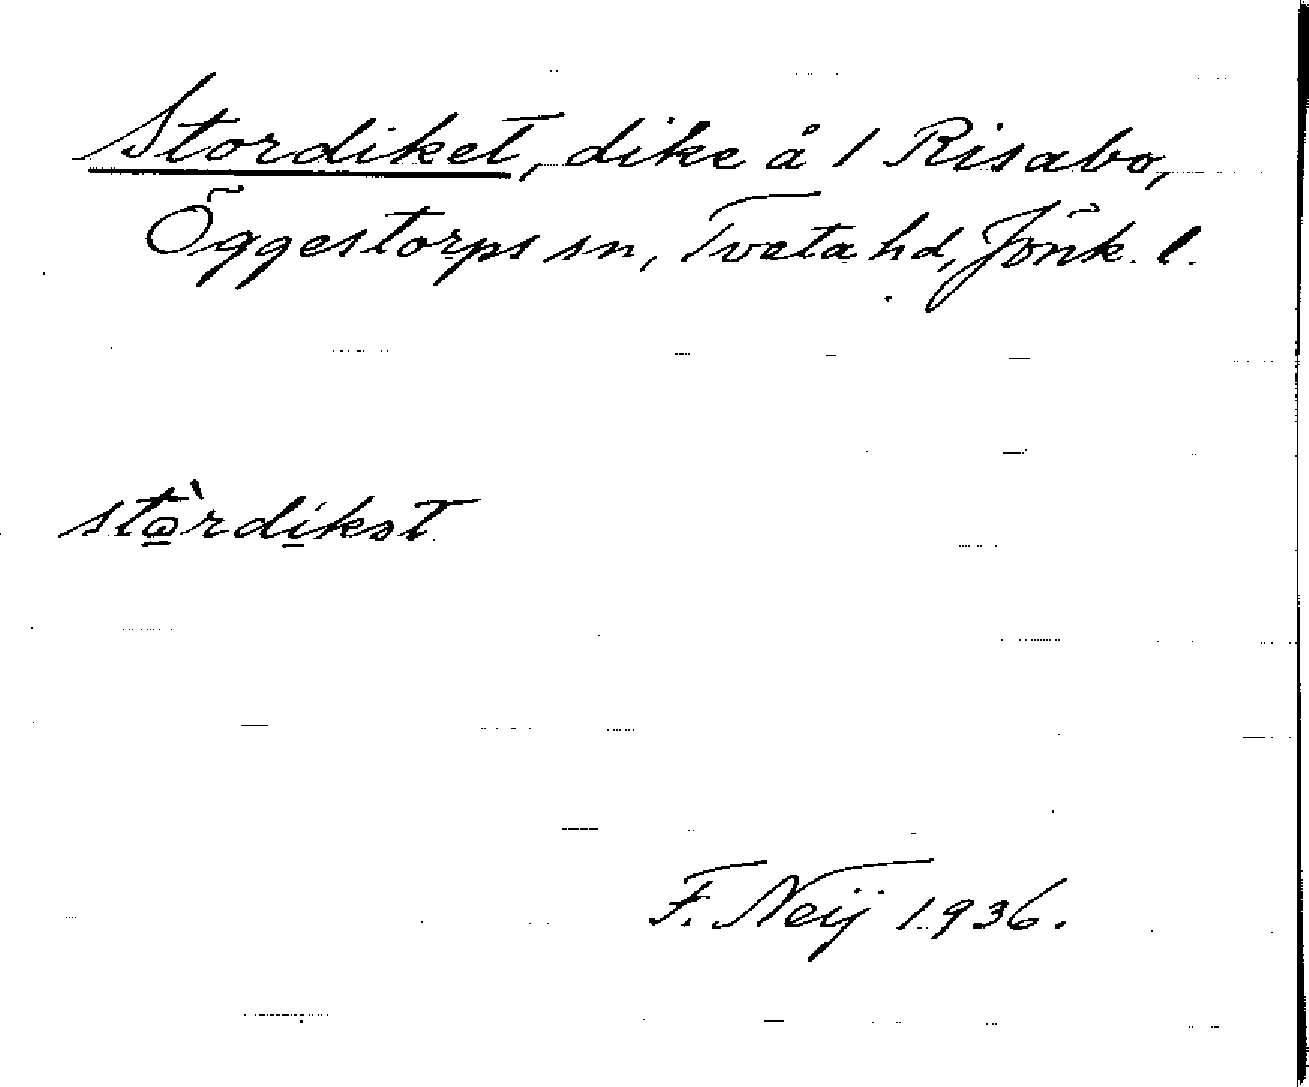 Stordiket, dike å 1 Risabo,
Öggestorps sn, Tveta hd, Jönk. l.
stò̲rdi̲kət
F. Neij 1936.